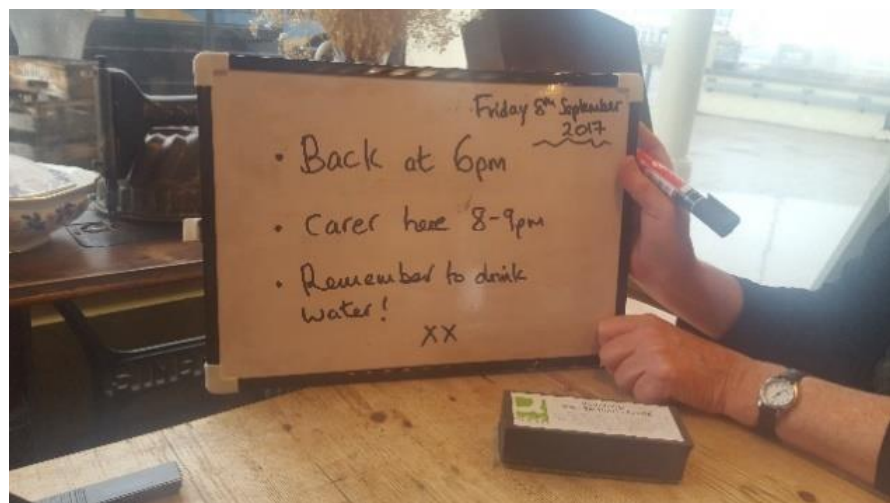 Friday 8th September
2017
• Back at 6pm
• Carer here 8-9pm
• Remember to drink
water!
XX